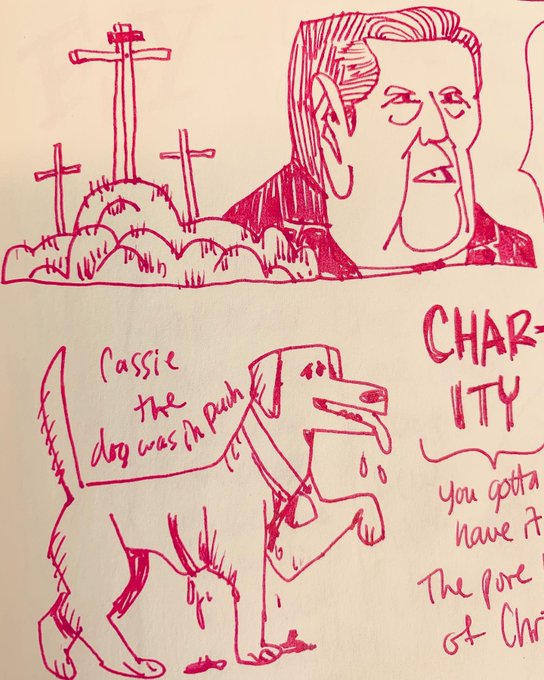 Cassie
the
dog was in
CHAR-
ITY
you gotta
have it
The pure
of Chri